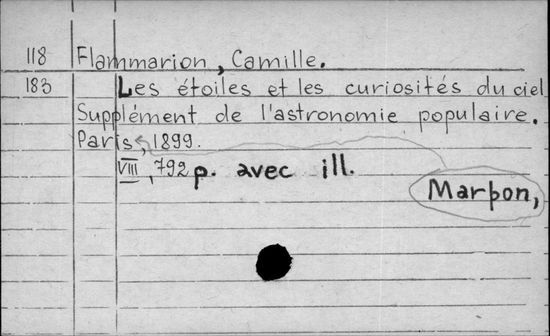 118 Flammarion, Camille.
183 Les étoiles et les curiosités du ciel
Supplément de l'astronomie populaire.
Paris, 1899.
VIII, 792 p. avec ill.
Marpon,